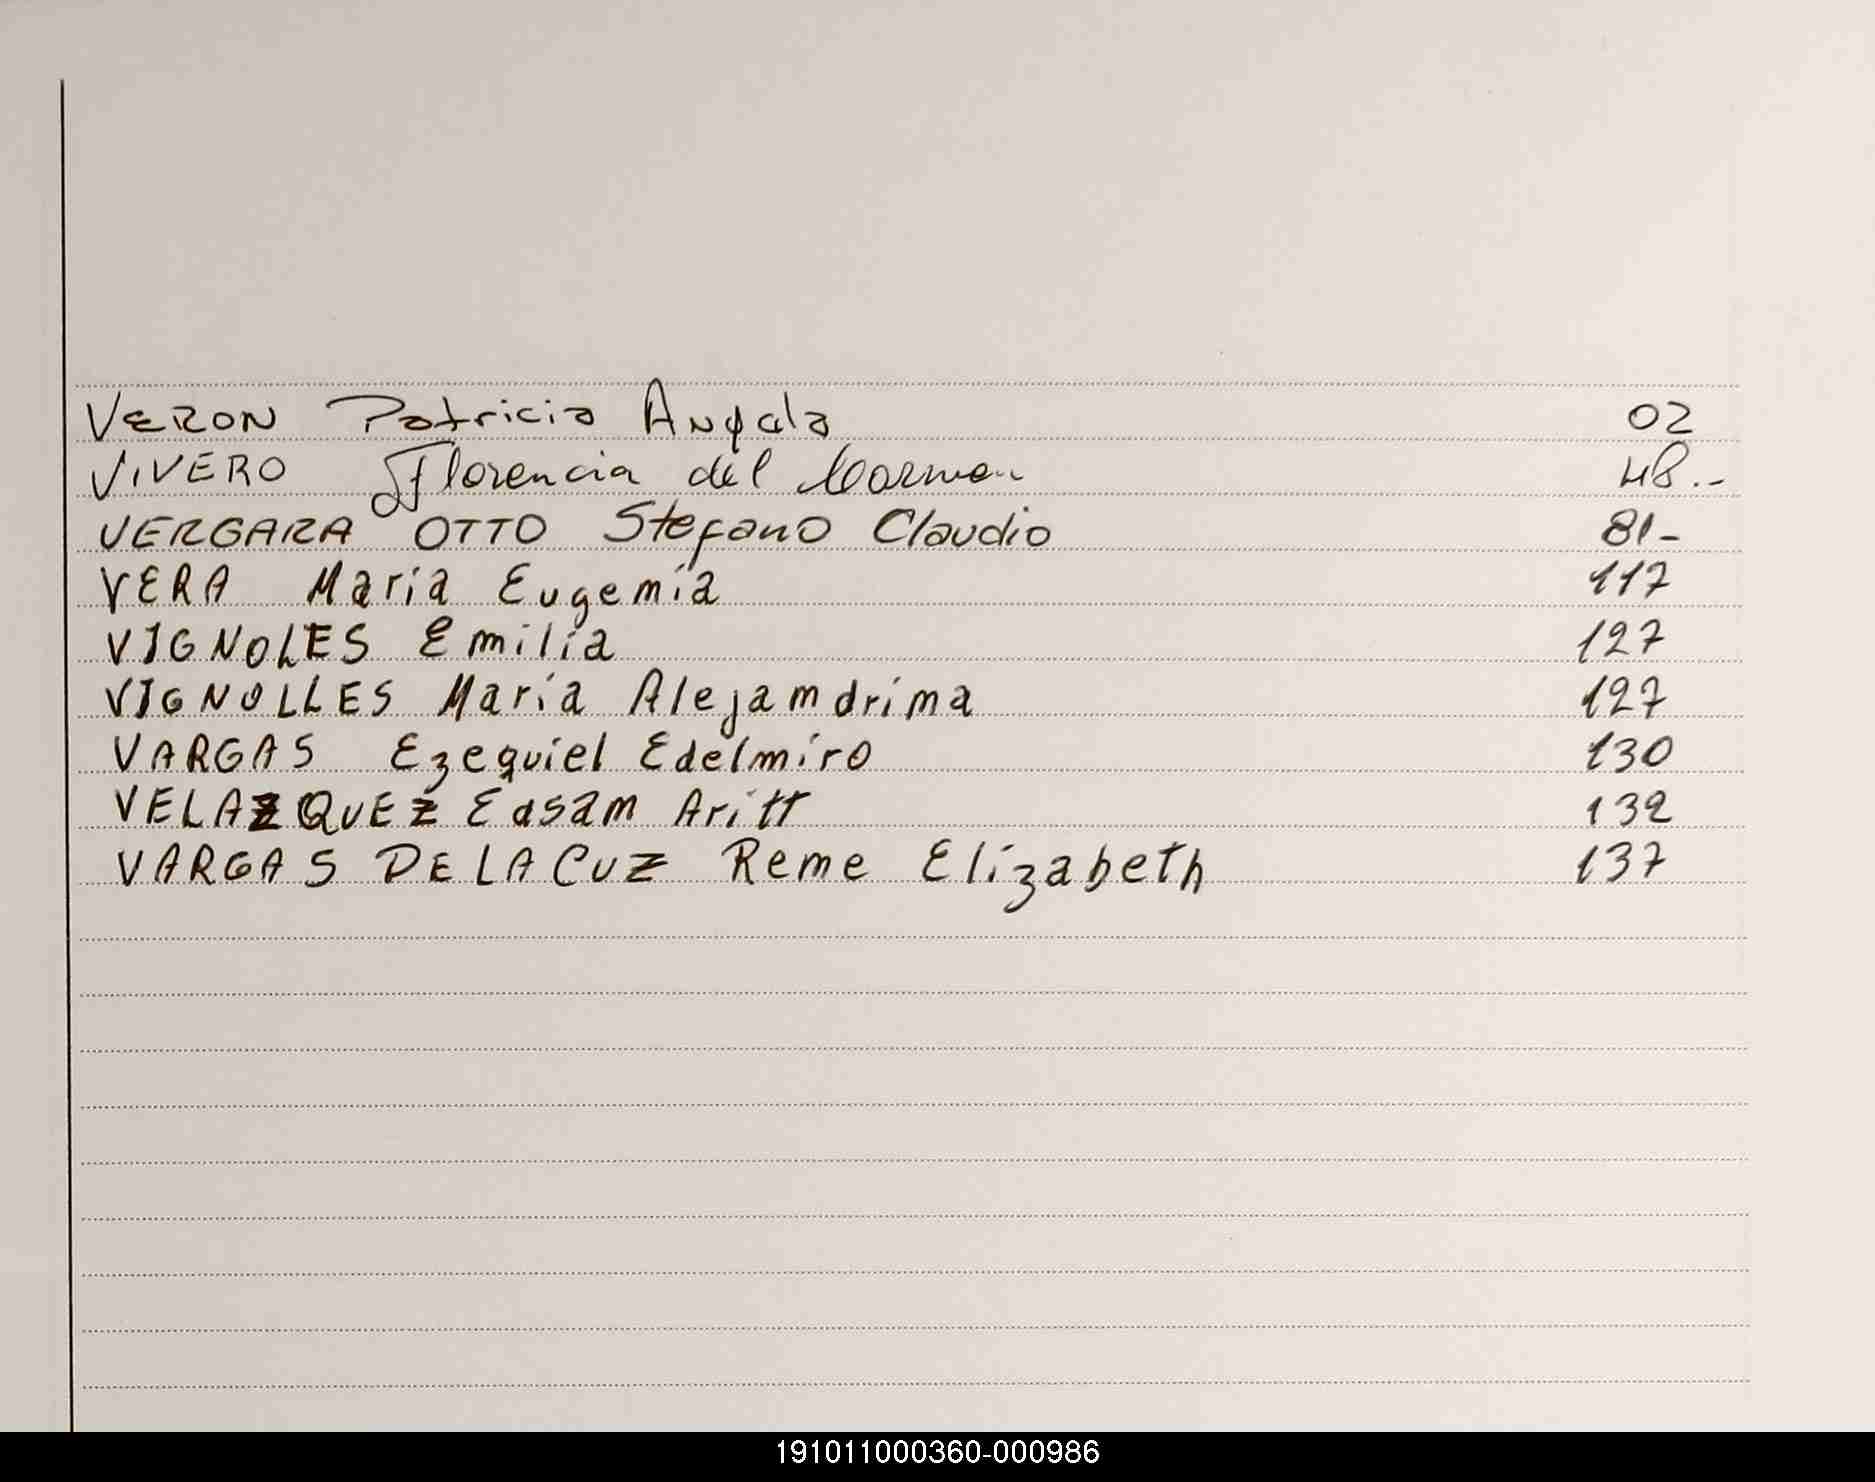 VERON Patricia Angela 02
VIVERO Florencia del Carmen 48.-
VERGARA OTTO Stefano Claudio 81-
VERA Maria Eugenia 117
VIGNOLES Emilia 127
VIGNOLLES Maria Alejandrina 127
VARGAS Ezequiel Edelmiro 130
VELAZQUEZ Edsan Aritt 132
VARGAS DE LA CUZ Rene Elizabeth 137
191011000360-000986